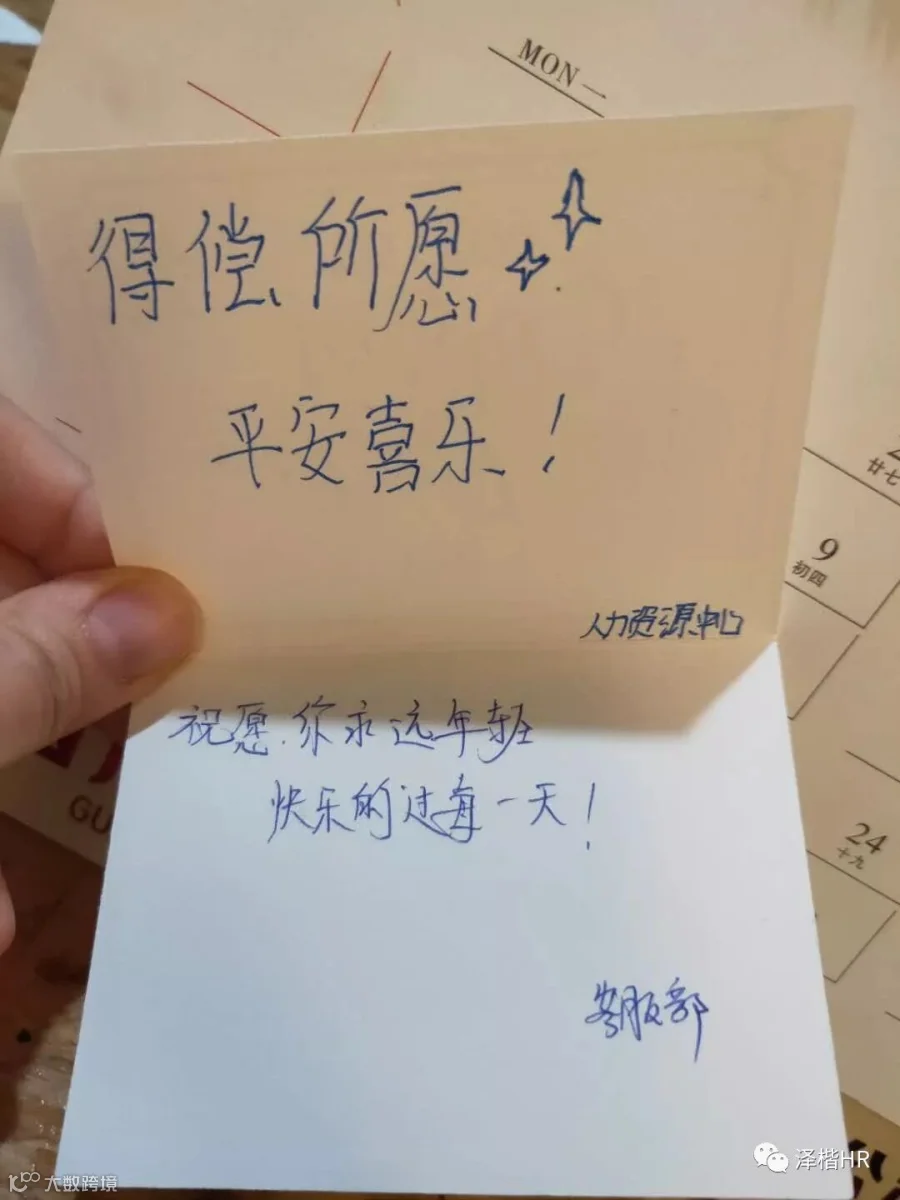 MON
得偿所愿
平安喜乐!
廿七
9
初四
人力资源中心
祝愿你永远年轻
快乐的过每一天!
GU
24
十九
客服部
泽楷HR
大数跨境